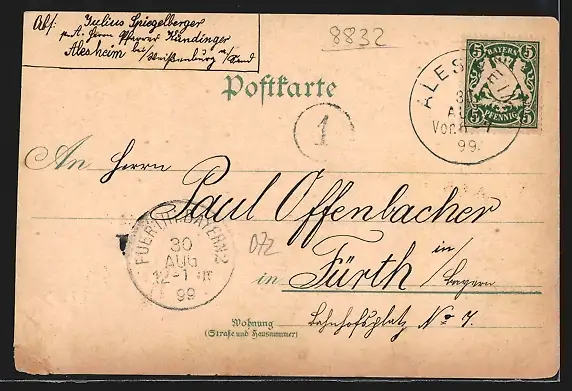 Abs: Julius Spiegelberger
p. A. Herrn Pfarrer Kündinger
Alesheim bei/Weißenburg a/Sand
8832
5 BAYERN 5
5 PFENNIG 5
ALES
30
AUG
Vor. 7
99.
Postkarte
1
An Herrn
Paul Offenbacher
FUERTH BAYERN 2
30
AUG
12-1
99
072
in Fürth in/Bayern
Wohnung
(Straße und Hausnummer)
Bahnhofsplatz No 7.